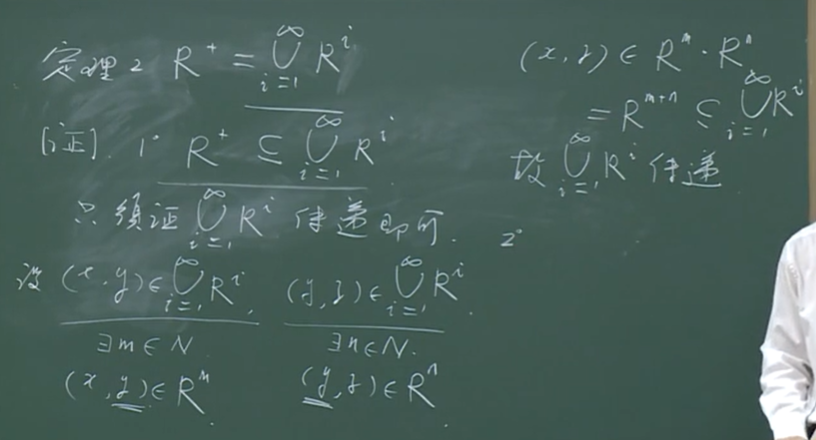 定理2 R⁺ = ⋃_{i=1}^{∞} Rⁱ
[证]. 1° R⁺ ⊆ ⋃_{i=1}^{∞} Rⁱ
只须证 ⋃_{i=1}^{∞} Rⁱ 传递即可.
设 (x,y)∈ ⋃_{i=1}^{∞} Rⁱ, (y,z)∈ ⋃_{i=1}^{∞} Rⁱ.
∃m∈N. ∃n∈N.
(x,y)∈Rᵐ. (y,z)∈Rⁿ.
(x,z)∈ Rᵐ·Rⁿ
= Rᵐ⁺ⁿ ⊆ ⋃_{i=1}^{∞} Rⁱ
故 ⋃_{i=1}^{∞} Rⁱ 传递
2°